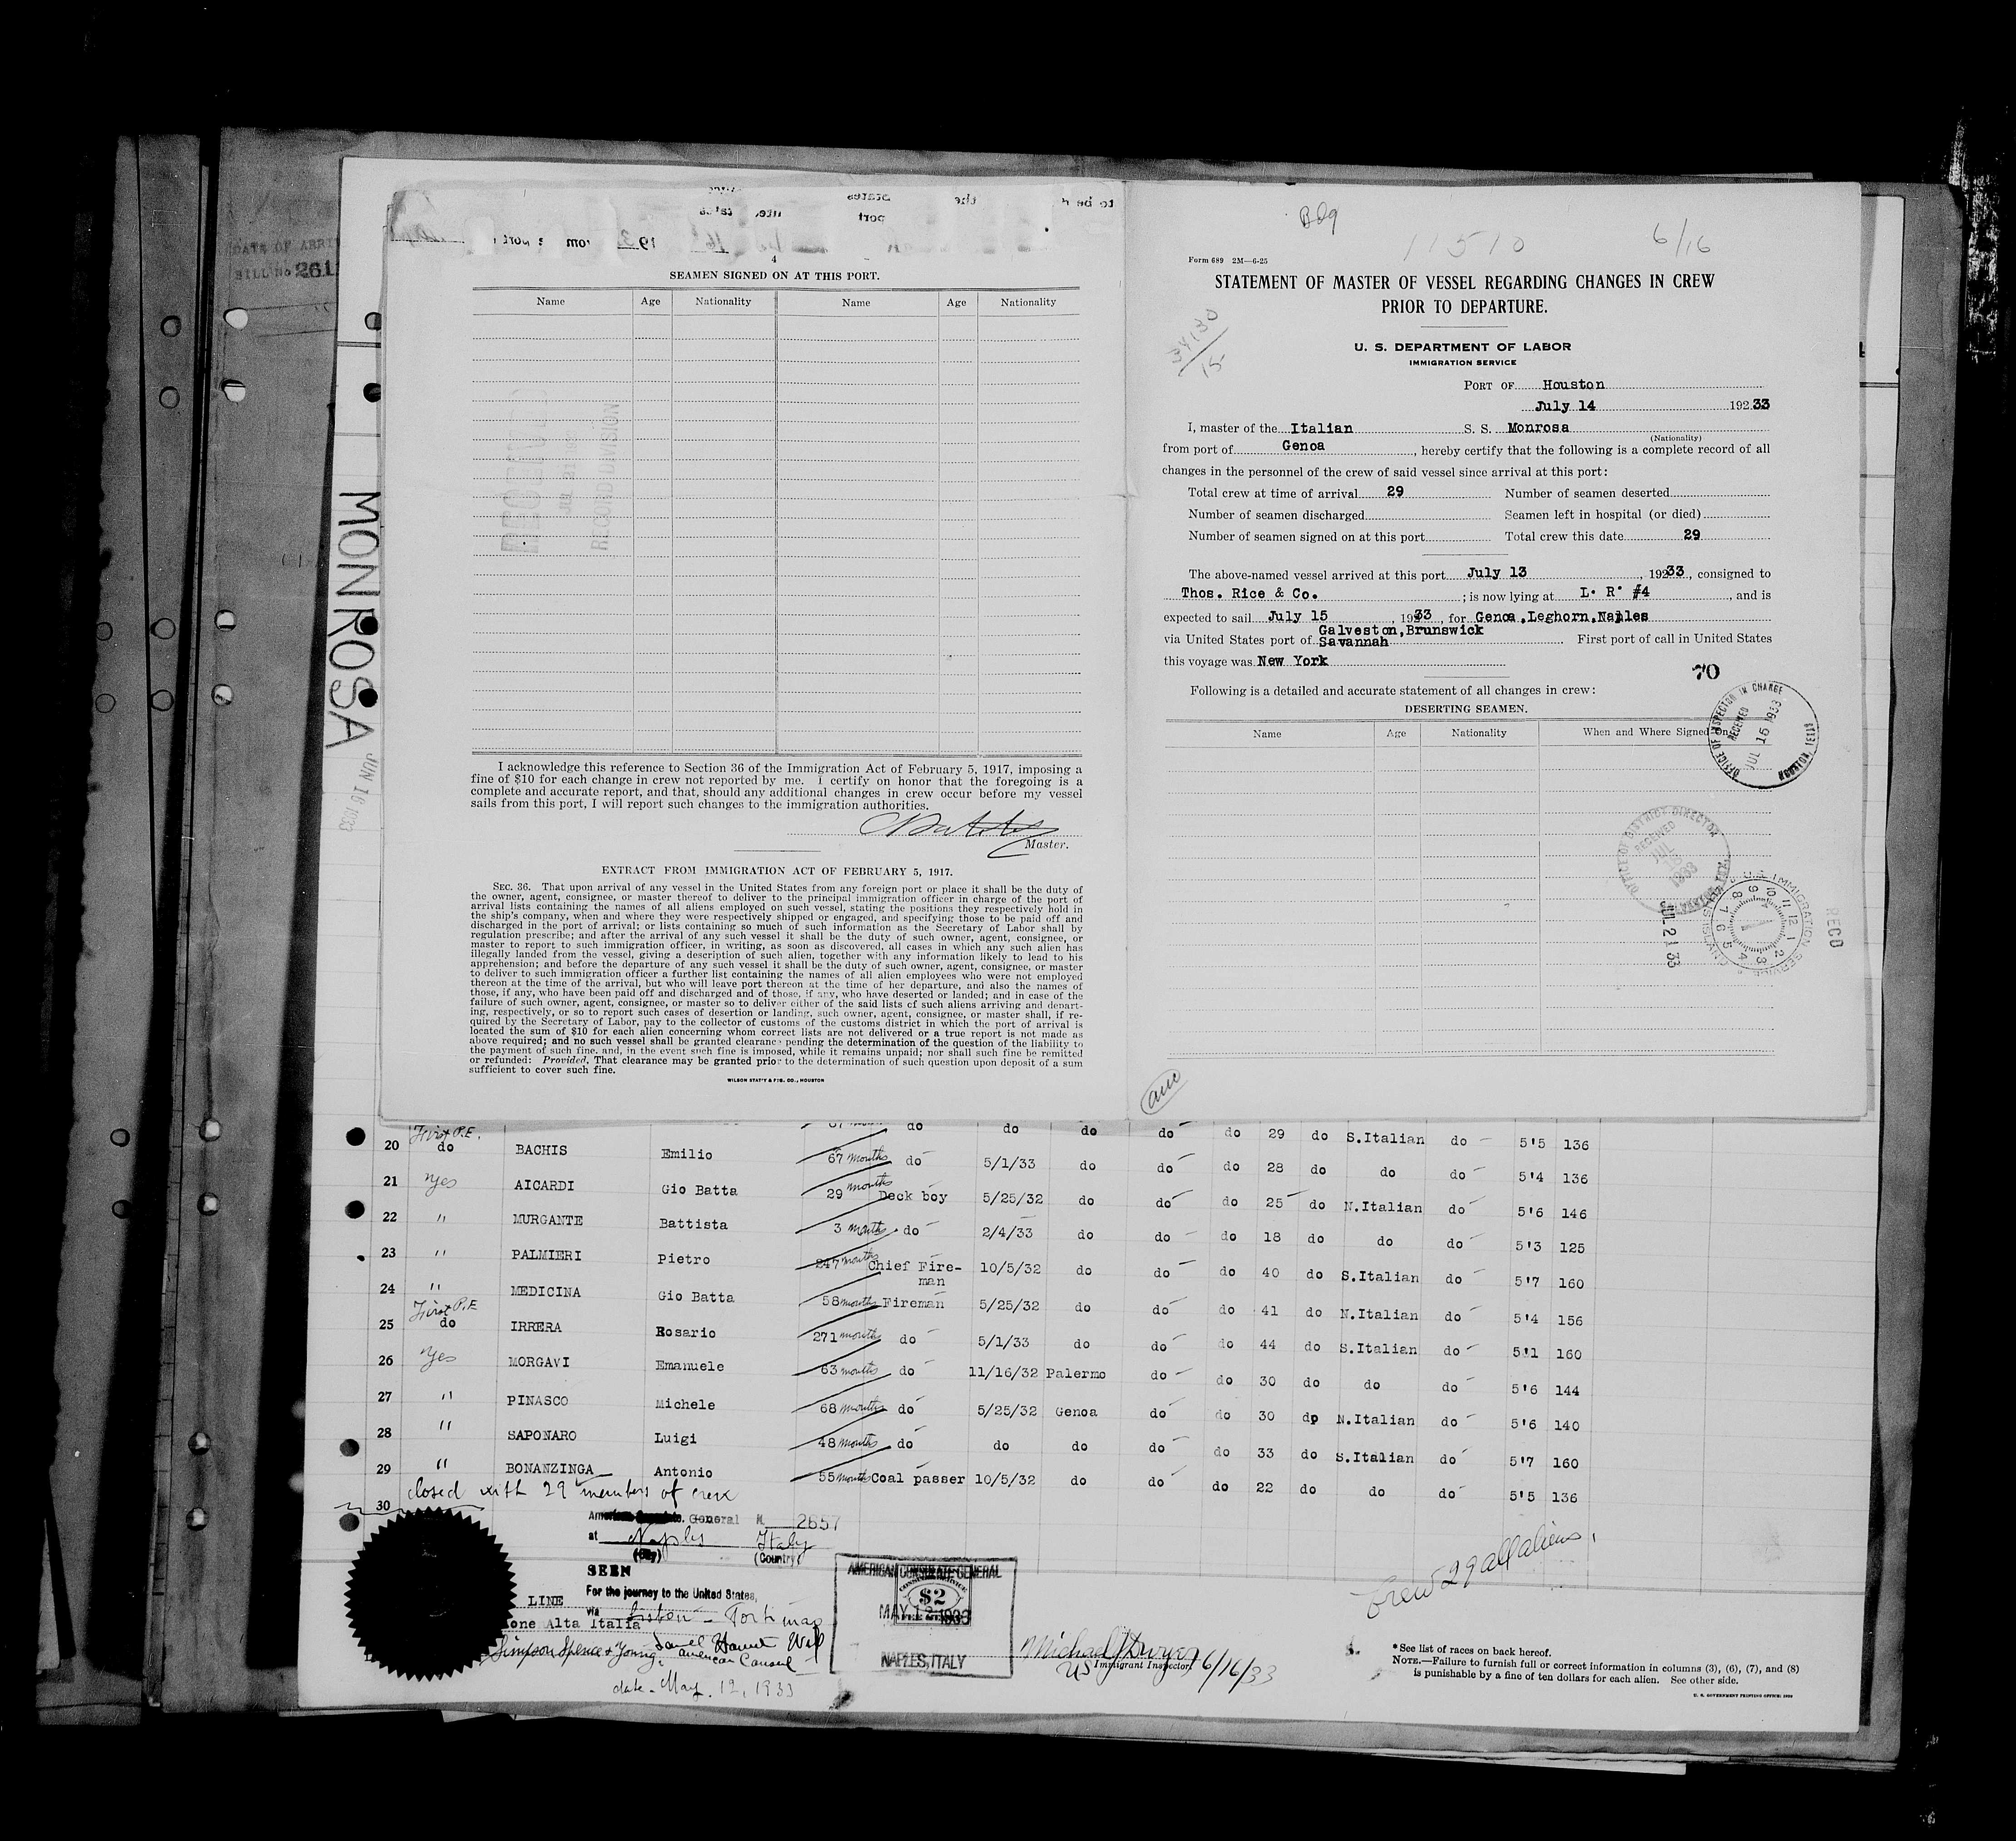 DATE OF ARRI
BILL No 261
MONROSA
JUN 16 1933
4
SEAMEN SIGNED ON AT THIS PORT.
Name Age Nationality Name Age Nationality
RECORD DIVISION
I acknowledge this reference to Section 36 of the Immigration Act of February 5, 1917, imposing a
fine of $10 for each change in crew not reported by me. I certify on honor that the foregoing is a
complete and accurate report, and that, should any additional changes in crew occur before my vessel
sails from this port, I will report such changes to the immigration authorities.
Master.
EXTRACT FROM IMMIGRATION ACT OF FEBRUARY 5, 1917.
SEC. 36. That upon arrival of any vessel in the United States from any foreign port or place it shall be the duty of
the owner, agent, consignee, or master thereof to deliver to the principal immigration officer in charge of the port of
arrival lists containing the names of all aliens employed on such vessel, stating the positions they respectively hold in
the ship's company, when and where they were respectively shipped or engaged, and specifying those to be paid off and
discharged in the port of arrival; or lists containing so much of such information as the Secretary of Labor shall by
regulation prescribe; and after the arrival of any such vessel it shall be the duty of such owner, agent, consignee, or
master to report to such immigration officer, in writing, as soon as discovered, all cases in which any such alien has
illegally landed from the vessel, giving a description of such alien, together with any information likely to lead to his
apprehension; and before the departure of any such vessel it shall be the duty of such owner, agent, consignee, or master
to deliver to such immigration officer a further list containing the names of all alien employees who were not employed
thereon at the time of the arrival, but who will leave port thereon at the time of her departure, and also the names of
those, if any, who have been paid off and discharged and of those, if any, who have deserted or landed; and in case of the
failure of such owner, agent, consignee, or master so to deliver either of the said lists of such aliens arriving and depart-
ing, respectively, or so to report such cases of desertion or landing, such owner, agent, consignee, or master shall, if re-
quired by the Secretary of Labor, pay to the collector of customs of the customs district in which the port of arrival is
located the sum of $10 for each alien concerning whom correct lists are not delivered or a true report is not made as
above required; and no such vessel shall be granted clearance pending the determination of the question of the liability to
the payment of such fine, and, in the event such fine is imposed, while it remains unpaid; nor shall such fine be remitted
or refunded: Provided, That clearance may be granted prior to the determination of such question upon deposit of a sum
sufficient to cover such fine.
WILSON STAT'Y & PTG. CO., HOUSTON
11510
6/16
Form 689 2M—6-25
STATEMENT OF MASTER OF VESSEL REGARDING CHANGES IN CREW
PRIOR TO DEPARTURE.
34130
15
U. S. DEPARTMENT OF LABOR
IMMIGRATION SERVICE
PORT OF Houston
July 14 192 33
I, master of the Italian S. S. Monrosa
(Nationality)
from port of Genoa, hereby certify that the following is a complete record of all
changes in the personnel of the crew of said vessel since arrival at this port:
Total crew at time of arrival 29 Number of seamen deserted
Number of seamen discharged Seamen left in hospital (or died)
Number of seamen signed on at this port Total crew this date 29
The above-named vessel arrived at this port July 13, 1933, consigned to
Thos. Rice & Co. ; is now lying at L. R. #4, and is
expected to sail July 15, 1933, for Genoa,Leghorn,Naples
via United States port of Galveston,Brunswick Savannah First port of call in United States
this voyage was New York
70
Following is a detailed and accurate statement of all changes in crew:
DESERTING SEAMEN.
Name Age Nationality When and Where Signed on
OFFICE OF INSPECTOR IN CHARGE
RECEIVED
JUL 15 1933
HOUSTON TEXAS
OFFICE OF DISTRICT DIRECTOR
RECEIVED
JUL 1933
U.S. IMMIGRATION SERVICE
JUL 21 33
RECD
do do do do do 29 do S.Italian do 5'5 136
20 First P.E. do BACHIS Emilio 67 months do 5/1/33 do do do 28 do do do 5'4 136
21 Yes AICARDI Gio Batta 29 months Deck boy 5/25/32 do do do 25 do N.Italian do 5'6 146
22 " MURGANTE Battista 3 months do 2/4/33 do do do 18 do do do 5'3 125
23 " PALMIERI Pietro 247 months Chief Fire-man 10/5/32 do do do 40 do S.Italian do 5'7 160
24 " MEDICINA Gio Batta 58 months Fireman 5/25/32 do do do 41 do N.Italian do 5'4 156
25 First P.E do IRRERA Rosario 271 months do 5/1/33 do do do 44 do S.Italian do 5'1 160
26 Yes MORGAVI Emanuele 63 months do 11/16/32 Palermo do do 30 do do do 5'6 144
27 " PINASCO Michele 68 months do 5/25/32 Genoa do do 30 dp N.Italian do 5'6 140
28 " SAPONARO Luigi 48 months do do do do do 33 do S.Italian do 5'7 160
29 " BONANZINGA Antonio 55 months Coal passer 10/5/32 do do do 22 do do do 5'5 136
30 closed with 29 members of crew
General N. 2657
at Naples Italy
(City) (Country)
SEEN
For the journey to the United States,
via Lisbon -
LINE
ione Alta Italia
Simpson Spence & Young.
American Consul
date. May. 12, 1933
AMERICAN CONSULATE GENERAL
CONSULAR SERVICE
$2
MAY 12 1933
NAPLES, ITALY
Michael Dwyer
US Immigrant Inspector 6/16/33
Crew 29 all aliens.
*See list of races on back hereof.
NOTE.—Failure to furnish full or correct information in columns (3), (6), (7), and (8)
is punishable by a fine of ten dollars for each alien. See other side.
U. S. GOVERNMENT PRINTING OFFICE